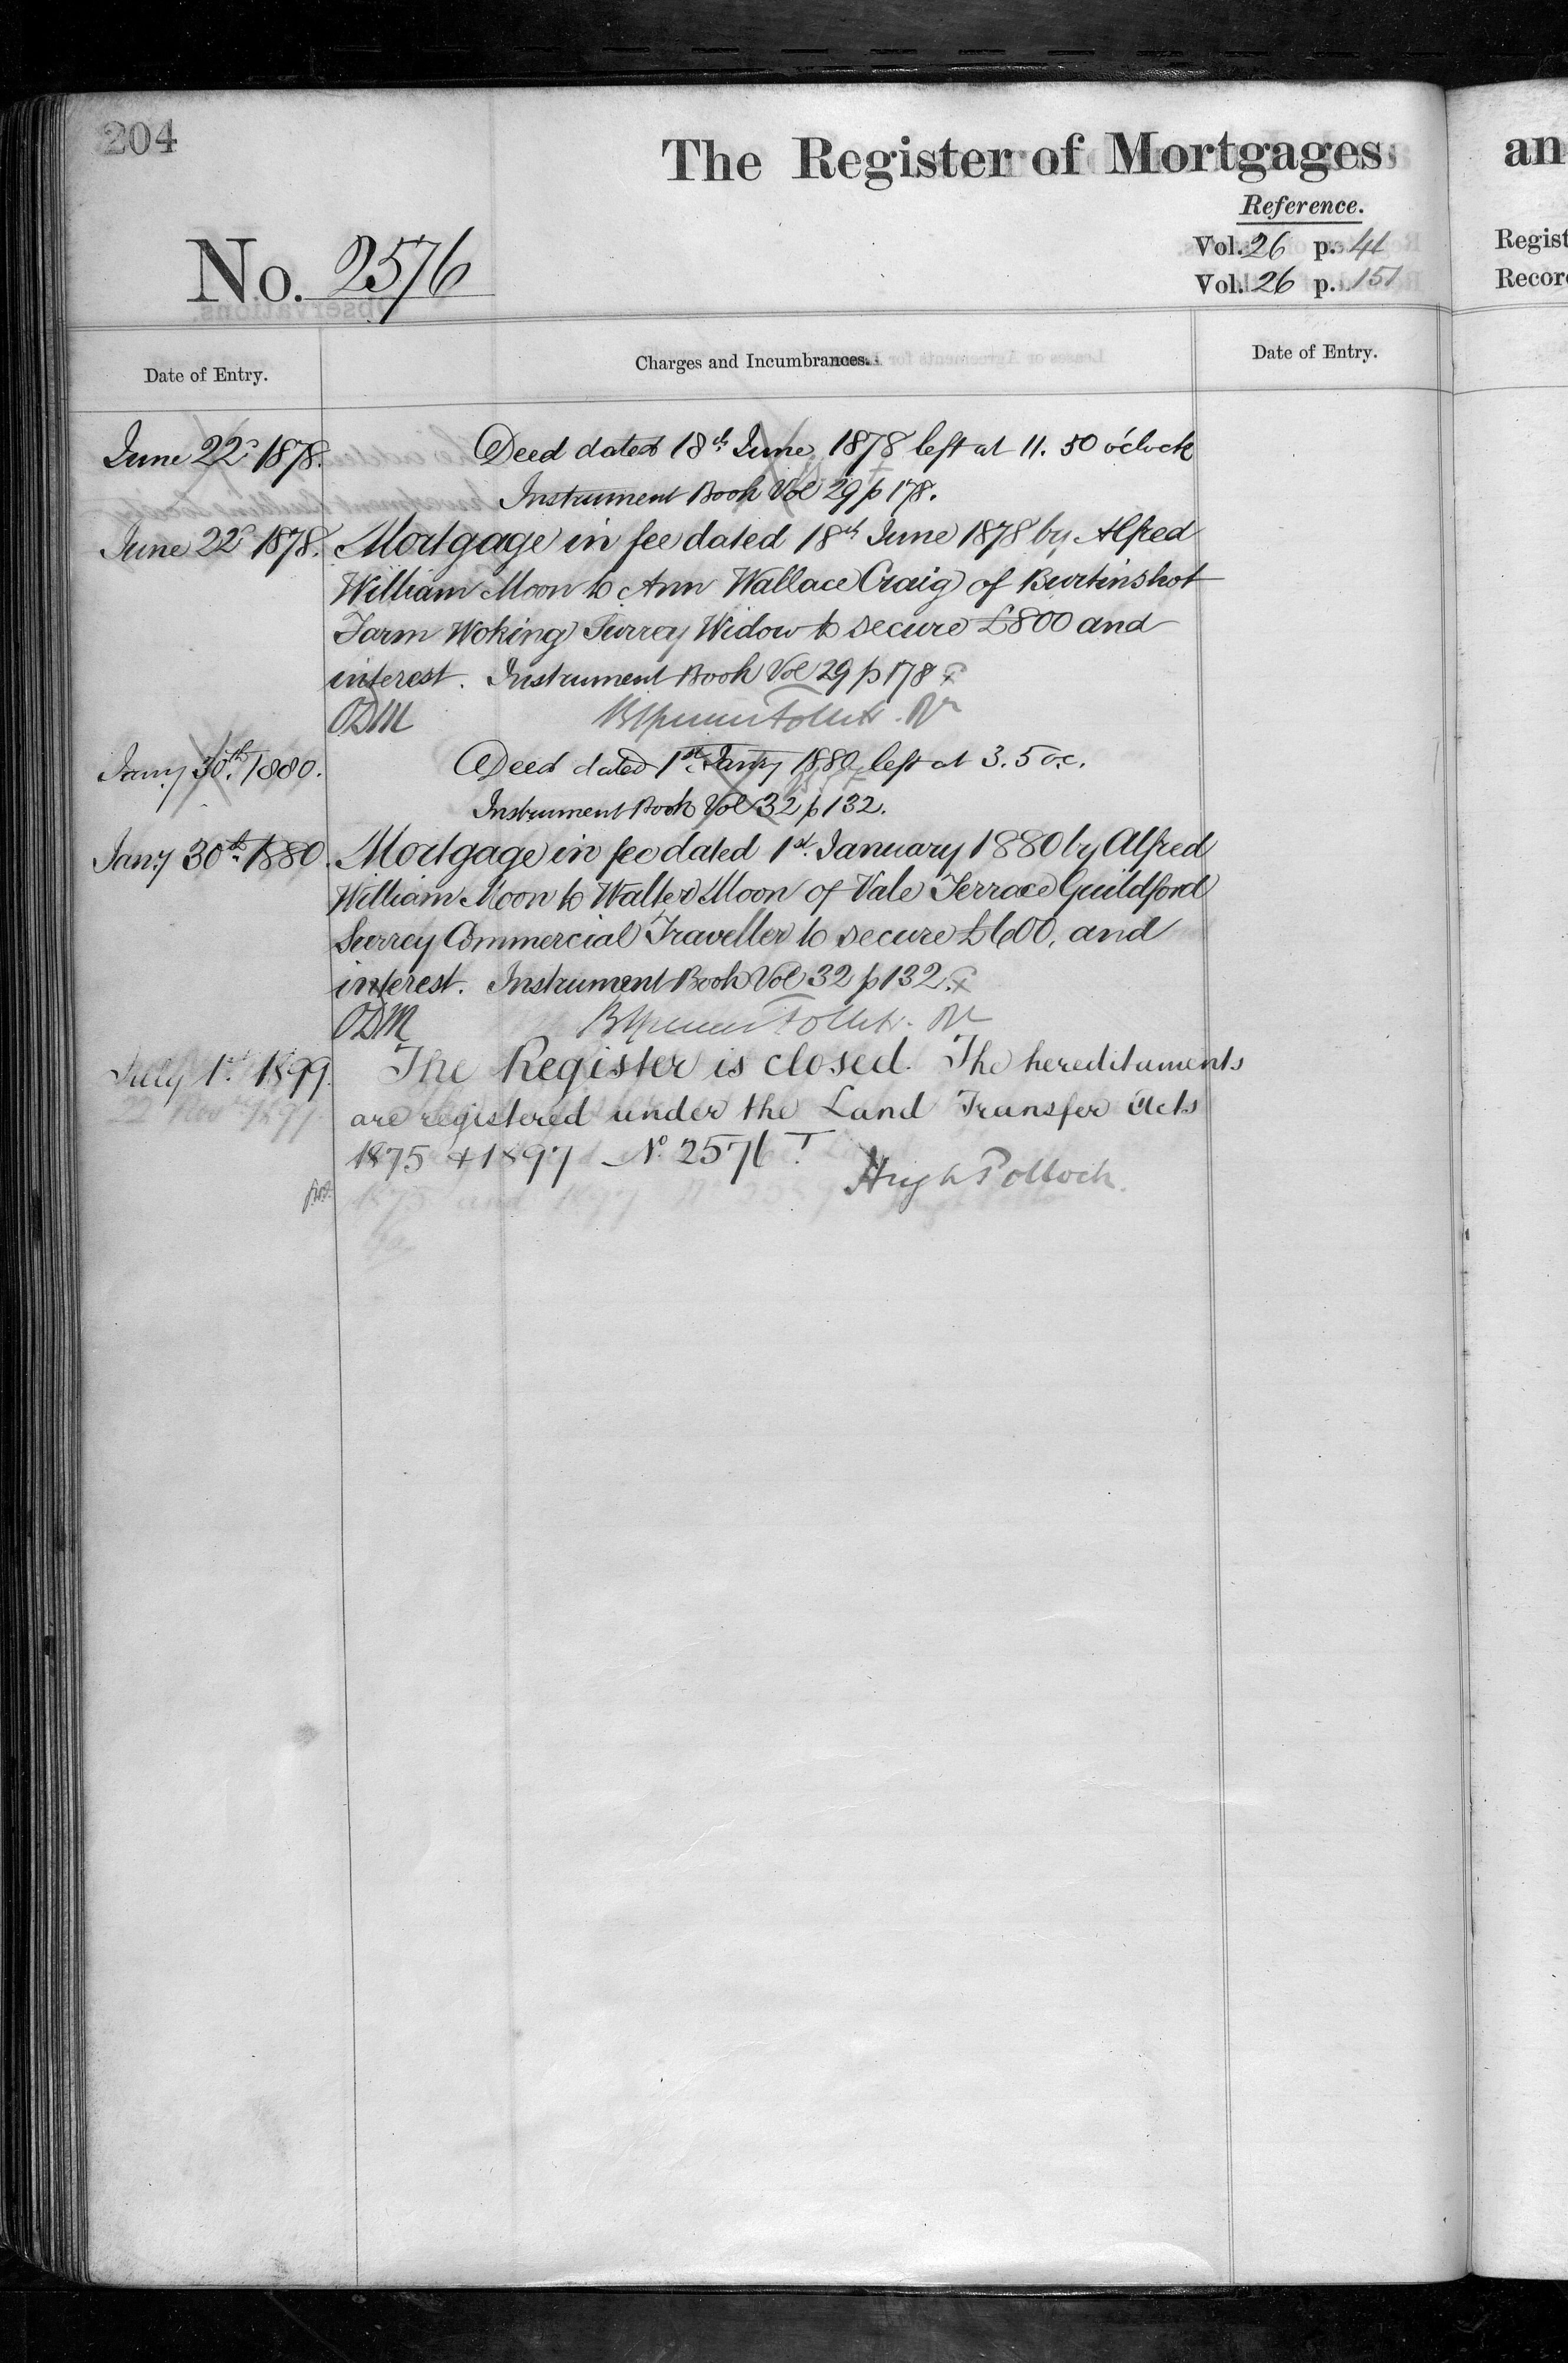 204
The Register of Mortgages
an
Reference.
Vol. 26 p. 41
Vol. 26 p. 151
Regist
Record
No. 2576
Date of Entry.
Charges and Incumbrances.
Date of Entry.
June 22d 1878. Deed dated 18th June 1878 left at 11.50 o'clock
Instrument Book Vol 29 p 178.
June 22d 1878. Mortgage in fee dated 18th June 1878 by Alfred
William Moon to Ann Wallace Craig of Burtinshot
Farm Woking Surrey Widow to secure £800 and
interest. Instrument Book Vol 29 p 178
ODM
Jany 30th 1880. Deed dated 1st Jany 1880 left at 3.5 o.c.
Instrument Book Vol 32 p 132.
Jany 30th 1880. Mortgage in fee dated 1st January 1880 by Alfred
William Moon to Walter Moon of Vale Terrace Guildford
Surrey Commercial Traveller to secure £600, and
interest. Instrument Book Vol 32 p 132.
ODM
July 1st 1899. The Register is closed. The hereditaments
are registered under the Land Transfer Acts
1875 + 1897 No. 2576 T
Hugh Pollock.